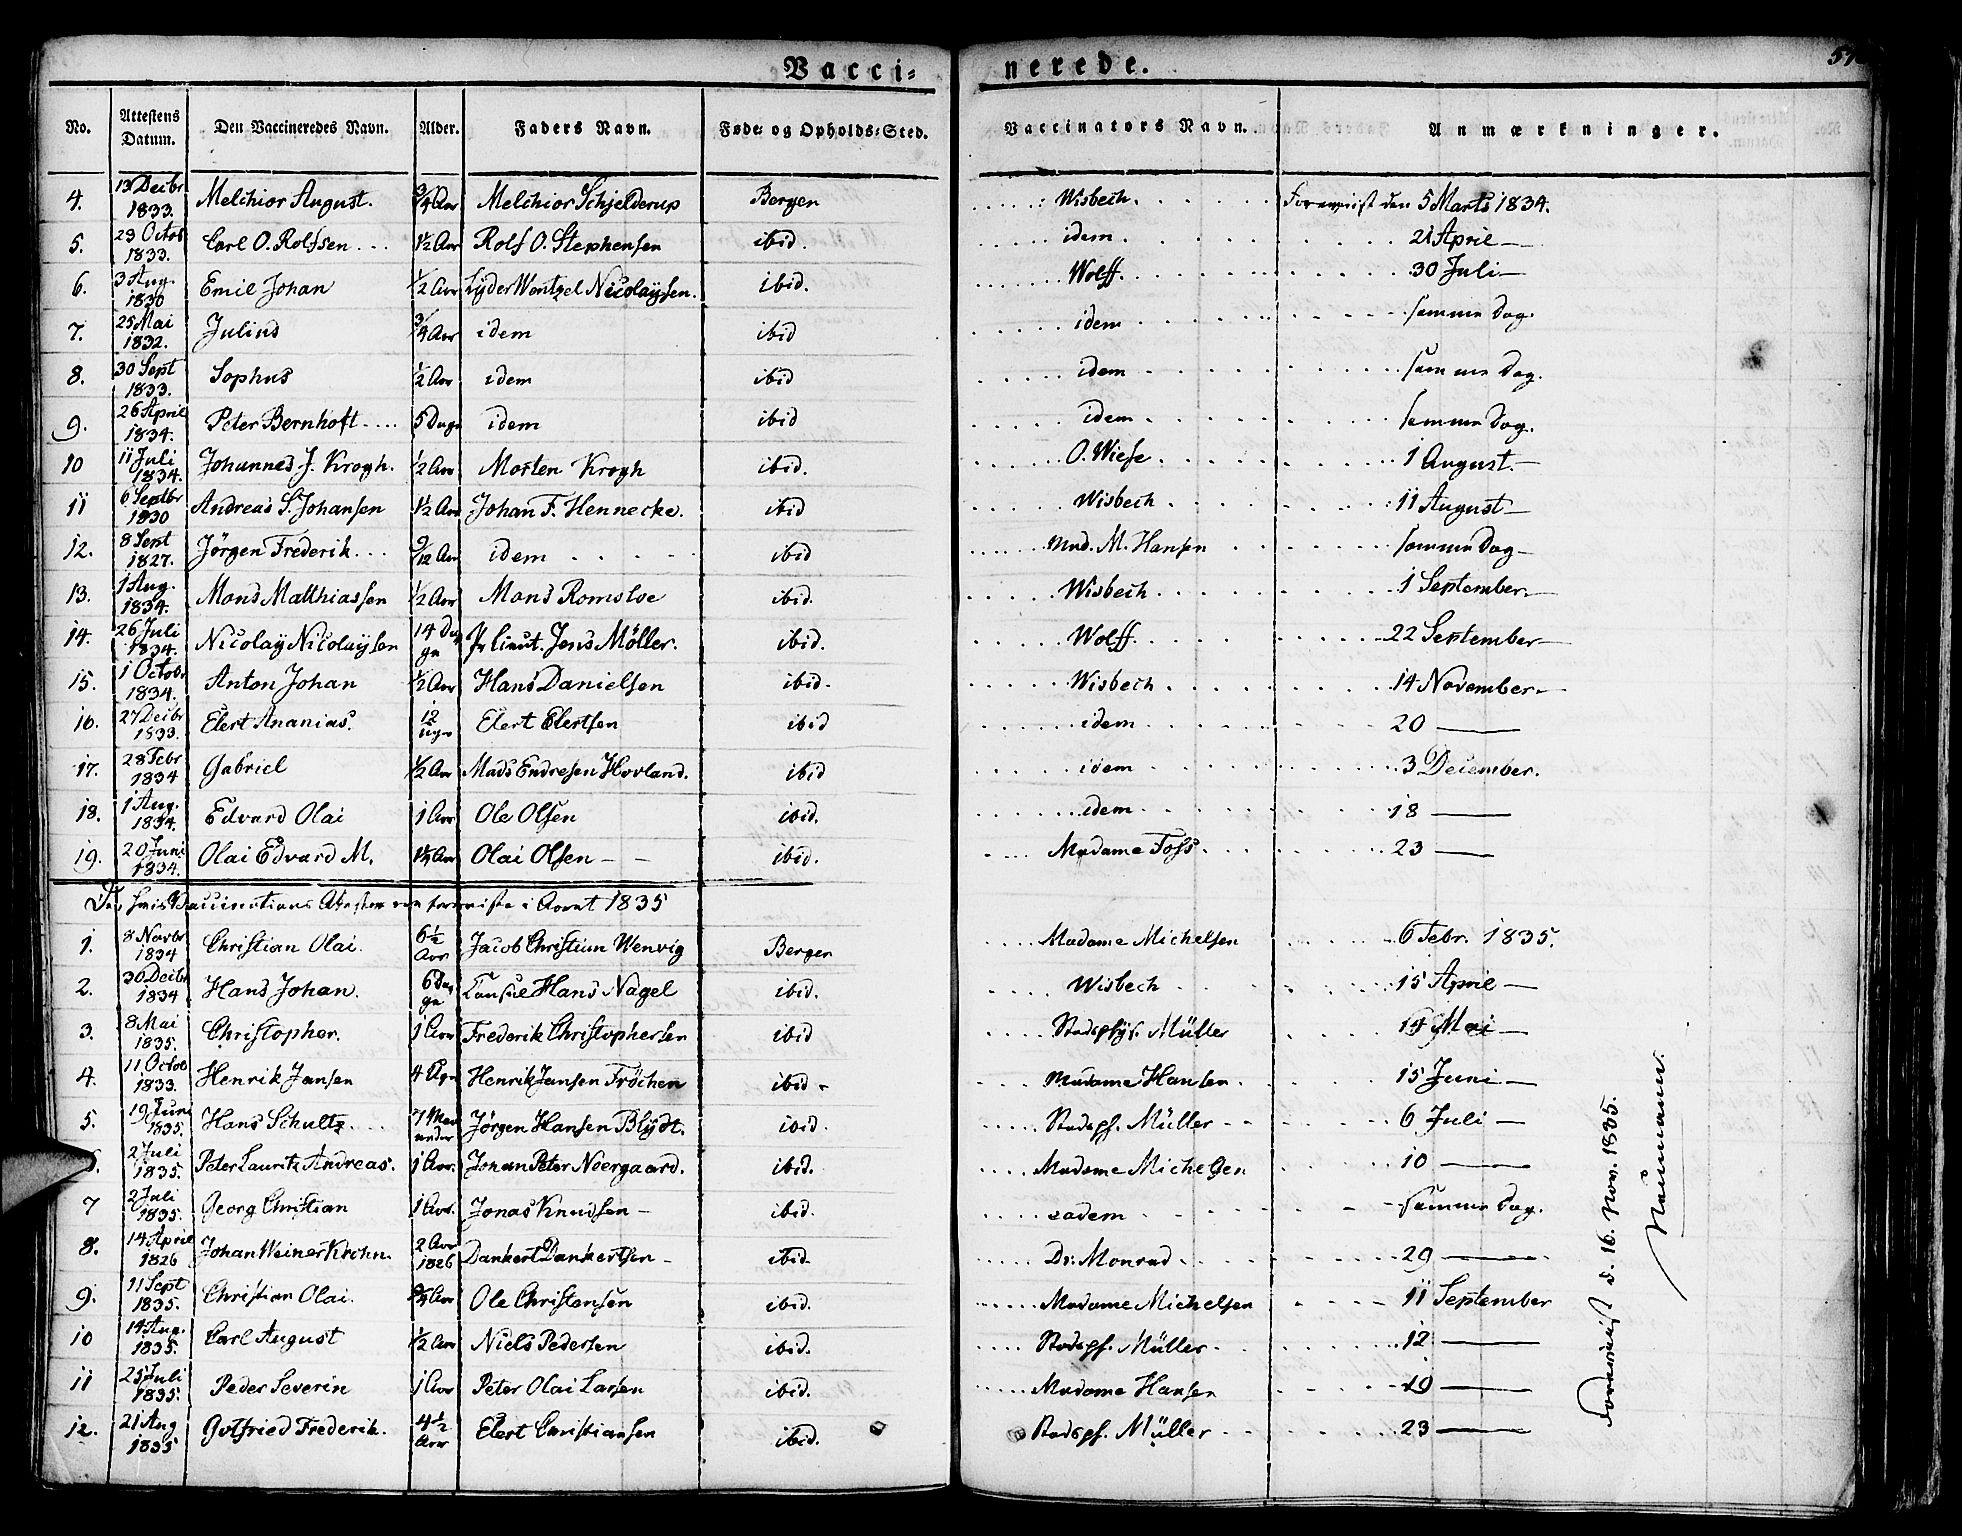 Vaccinerede.
No. Attestens Datum. Den Vaccineredes Navn. Alder. Faders Navn. Føde- og Opholds-Sted. Vaccinators Navn. Anmærkninger.
4. 13 Decbr 1833. Melchior August. 3/4 Aar Melchior Schjelderup Bergen Wisbech. Foreviist den 5 Marts 1834.
5. 29 Octob 1833. Carl O. Rolfsen 1 1/2 Aar Rolf O. Stephensen ibid. idem. 21 April
6. 3 Aug. 1830 Emil Johan 1/2 Aar Lyder Wentzel Nicolaysen. ibid. Wolff. 30 Juli
7. 25 Mai 1832. Julius 3/4 Aar idem ibid idem samme Dag.
8. 30 Sept 1833. Sophus 1/2 Aar idem ibid idem samme Dag.
9. 26 April 1834. Peter Bernhoft 5 Dage idem ibid idem samme Dag.
10 11 Juli 1834. Johannes J. Krogh. 1/2 Aar Morten Krogh ibid. O. Wiese 1 August.
11 6 Septbr 1830 Andreas S. Johansen 1 1/2 Aar Johan F. Hennecke. ibid Wisbech 11 August
12. 8 Sept 1827. Jörgen Frederik 9/12 Aar idem ibid Mad. M. Hansen samme Dag
13. 1 Aug. 1834. Mons Matthiassen 1/2 Aar Mons Romsloe ibid. Wisbech 1 September
14. 26 Juli 1834. Nicolay Nicolaysen 14 Dage Pr Lieut. Jens Möller. ibid. Wolff. 22 September
15. 1 Octobr 1834. Anton Johan 1/2 Aar Hans Danielsen ibid. Wisbech 14 November
16. 27 Decbr 1833. Elert Ananias. 12 Elert Elertsen ibid idem 20
17. 28 Febr 1834 Gabriel 1/2 Aar Mads Endresen Hovland. ibid idem 3 December.
18. 1 Aug. 1834. Edvard Olai 1 Aar Ole Olsen ibid. idem 18
19. 20 Juni 1834. Olai Edvard M. 1 1/4 Aar Olai Olsen ibid. Madame Foss 23
Vaccinations Attester ere foreviste i Aaret 1835
1. 8 Novbr 1834 Christian Olai. 6 1/2 Aar Jacob Christian Wenvig Bergen Madame Michelsen 6 Febr. 1835.
2. 30 Decbr 1834 Hans Johan. 6 Dage Consul Hans Nagel ibid. Wisbech 15 April
3. 8 Mai 1835. Christopher. 1 Aar Frederik Christophersen ibid Stadsphys. Müller 14 Mai
4. 11 Octob 1833. Henrik Jansen 4 Henrik Jansen Fröchen ibid Madame Hansen 15 Juni
5. 19 Juni 1835. Hans Schultz 7 Maaneder Jörgen Hansen Blydt. ibid. Stadsph. Müller 6 Juli
6. 2 Juli 1835. Peter Lauritz Andreas. 1 Aar. Johan Peter Noergaard. ibid. Madame Michelsen 10
7 2 Juli 1835. Georg Christian 1 Aar. Jonas Knudsen ibid. eadem samme Dag.
8. 14 April 1826 Johan Weiner Krohn. 2 Aar 1826 Dankert Dankertsen ibid. Dr. Monrad 29
9. 11 Sept 1835. Christian Olai. 3/4 Aar Ole Christensen ibid. Madame Michelsen 11 September
10 14 Aug. 1835. Carl August 1/2 Aar Niels Pedersen ibid. Stadsph. Müller 12
11 25 Juli 1835. Peder Severin 1 Aar Peter Olai Larsen ibid. Madame Hansen 19
12. 21 Aug 1835 Gotfried Frederik. 4 1/2 Aar Elert Christiansen ibid. Stadsph. Müller 23
Foreviist d. 16. Nov. 1835.
Neumann.